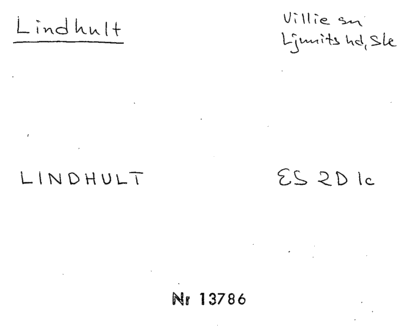 Lindhult
Villie sn
Ljunits hd, Ske
LINDHULT
ES 2D 1c
Nr 13786